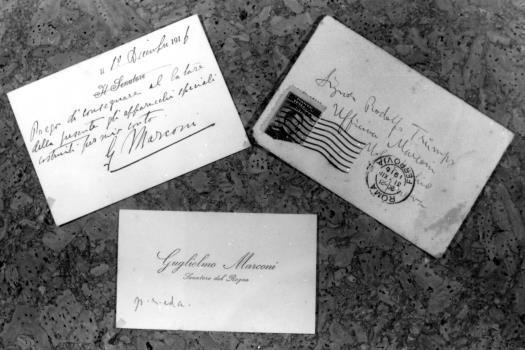 li 12 Dicembre 1916
Il Senatore
Prego di consegnare al latore
della presente gli apparecchi speciali
costruiti per mio conto.
G. Marconi
Rodolfo
Officina Marconi
ROMA
FERROVIA
1916
Guglielmo Marconi
Senatore del Regno